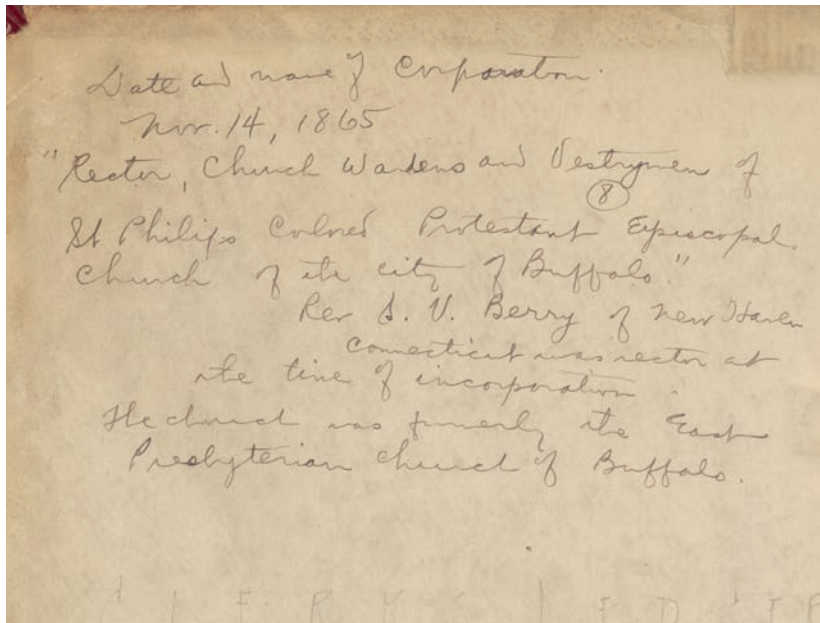 Date and name of Corporation.
Nov. 14, 1865
"Rector, Church Wardens and Vestrymen of
(8)
St Philips Colored Protestant Episcopal
Church of the city of Buffalo."
Rev S. V. Berry of New Haven
Connecticut was rector at
the time of incorporation.
The church was formerly the East
Presbyterian Church of Buffalo.